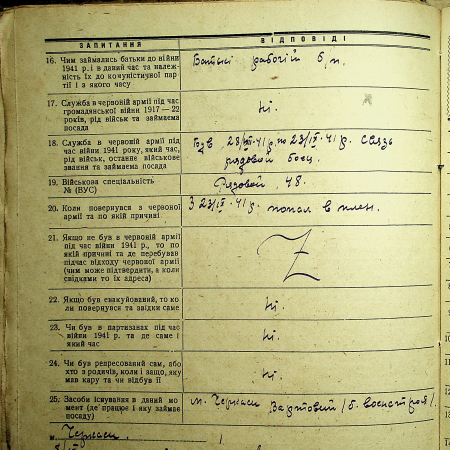 ЗАПИТАННЯ
ВІДПОВІДІ
16. Чим займались батьки до війни
1941 р. і в даний час та належ-
ність їх до комуністичної пар-
тії і з якого часу
Батько рабочій б. п.
17. Служба в червоній армії під час
громадянської війни 1917 — 22
років, рід військ та займаєма
посада
Ні.
18. Служба в червоній армії під
час війни 1941 року, який час,
рід військ, останнє військове
звання та займаєма посада
41 р. по 23/ІХ-41 р. связь
рядовой боец.
19. Військова спеціяльність
№ (ВУС)
Рядовой, 48.
20. Коли повернувся з червоної
армії та по якій причині
З 23/ІХ-41 р. попал в плен.
21. Якщо не був в червоній армії
під час війни 1941 р., то по
якій причині та де перебував
підчас відходу червоної армії
(чим може підтвердити, а коли
свідками то їх адреса)
Z
22. Якщо був евакуйований, то ко
ли повернувся та звідки саме
Ні.
23. Чи був в партизанах під час
війни 1941 р. та де саме і
який час
Ні.
24. Чи був репресований сам, або
хто з родичів, коли і защо, яку
мав кару та чи відбув її
Ні.
25. Засоби існування в даний мо
мент (де працює і яку займає
посаду)
м. Черкаси Вартовий
м. Черкаси.